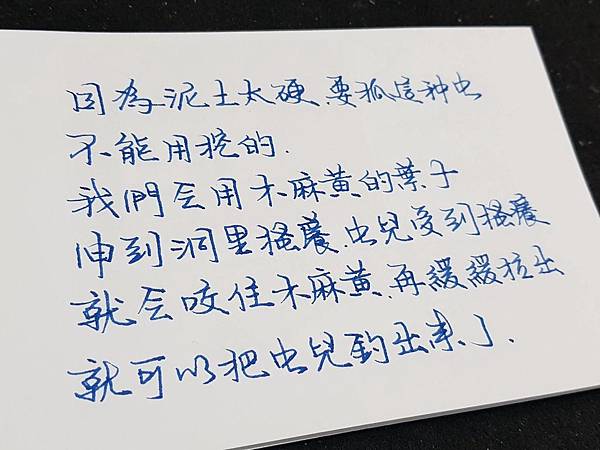 因為泥土太硬.要抓這种虫
不能用挖的.
我們会用木麻黃的葉子
伸到洞里搔癢.虫兒受到搔癢
就会咬住木麻黃.再緩緩拉出
就可以把虫兒釣出来了.